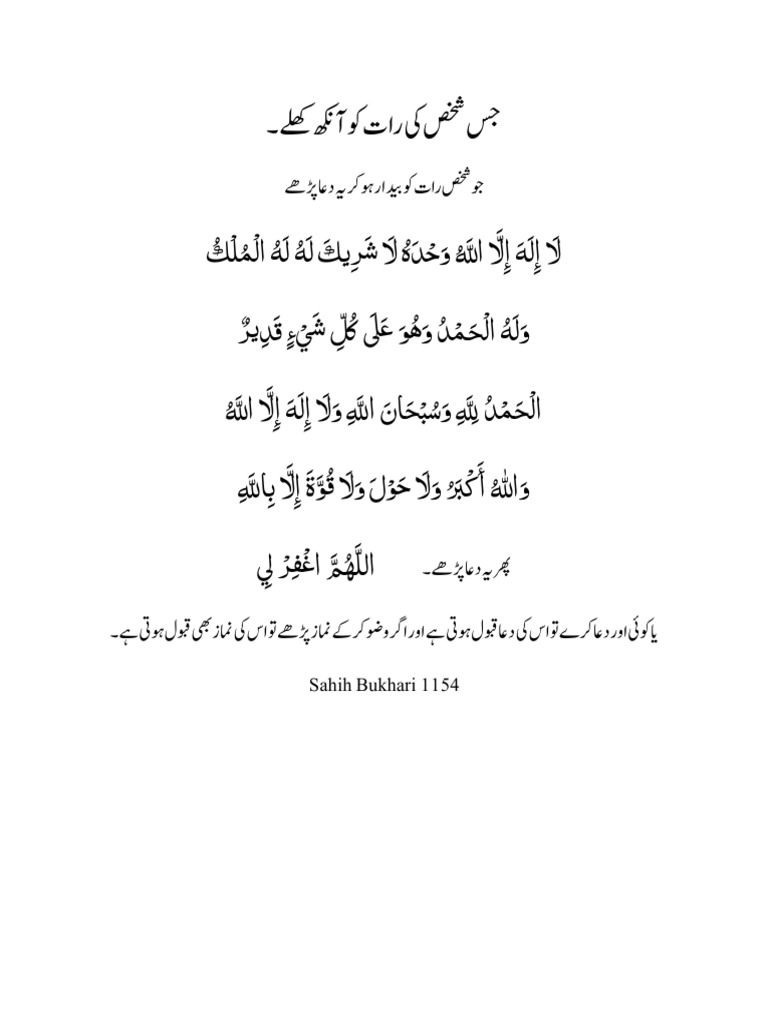 جس شخص کی رات کو آنکھ کھلے۔
جو شخص رات کو بیدار ہو کر یہ دعا پڑھے
لَا إِلَهَ إِلَّا اللَّهُ وَحْدَهُ لَا شَرِيكَ لَهُ لَهُ الْمُلْكُ
وَلَهُ الْحَمْدُ وَهُوَ عَلَى كُلِّ شَيْءٍ قَدِيرٌ
الْحَمْدُ لِلَّهِ وَسُبْحَانَ اللَّهِ وَلَا إِلَهَ إِلَّا اللَّهُ
وَاللَّهُ أَكْبَرُ وَلَا حَوْلَ وَلَا قُوَّةَ إِلَّا بِاللَّهِ
پھر یہ دعا پڑھے۔ اللَّهُمَّ اغْفِرْ لِي
یا کوئی اور دعا کرے تو اس کی دعا قبول ہوتی ہے اور اگر وضو کر کے نماز پڑھے تو اس کی نماز بھی قبول ہوتی ہے۔
Sahih Bukhari 1154